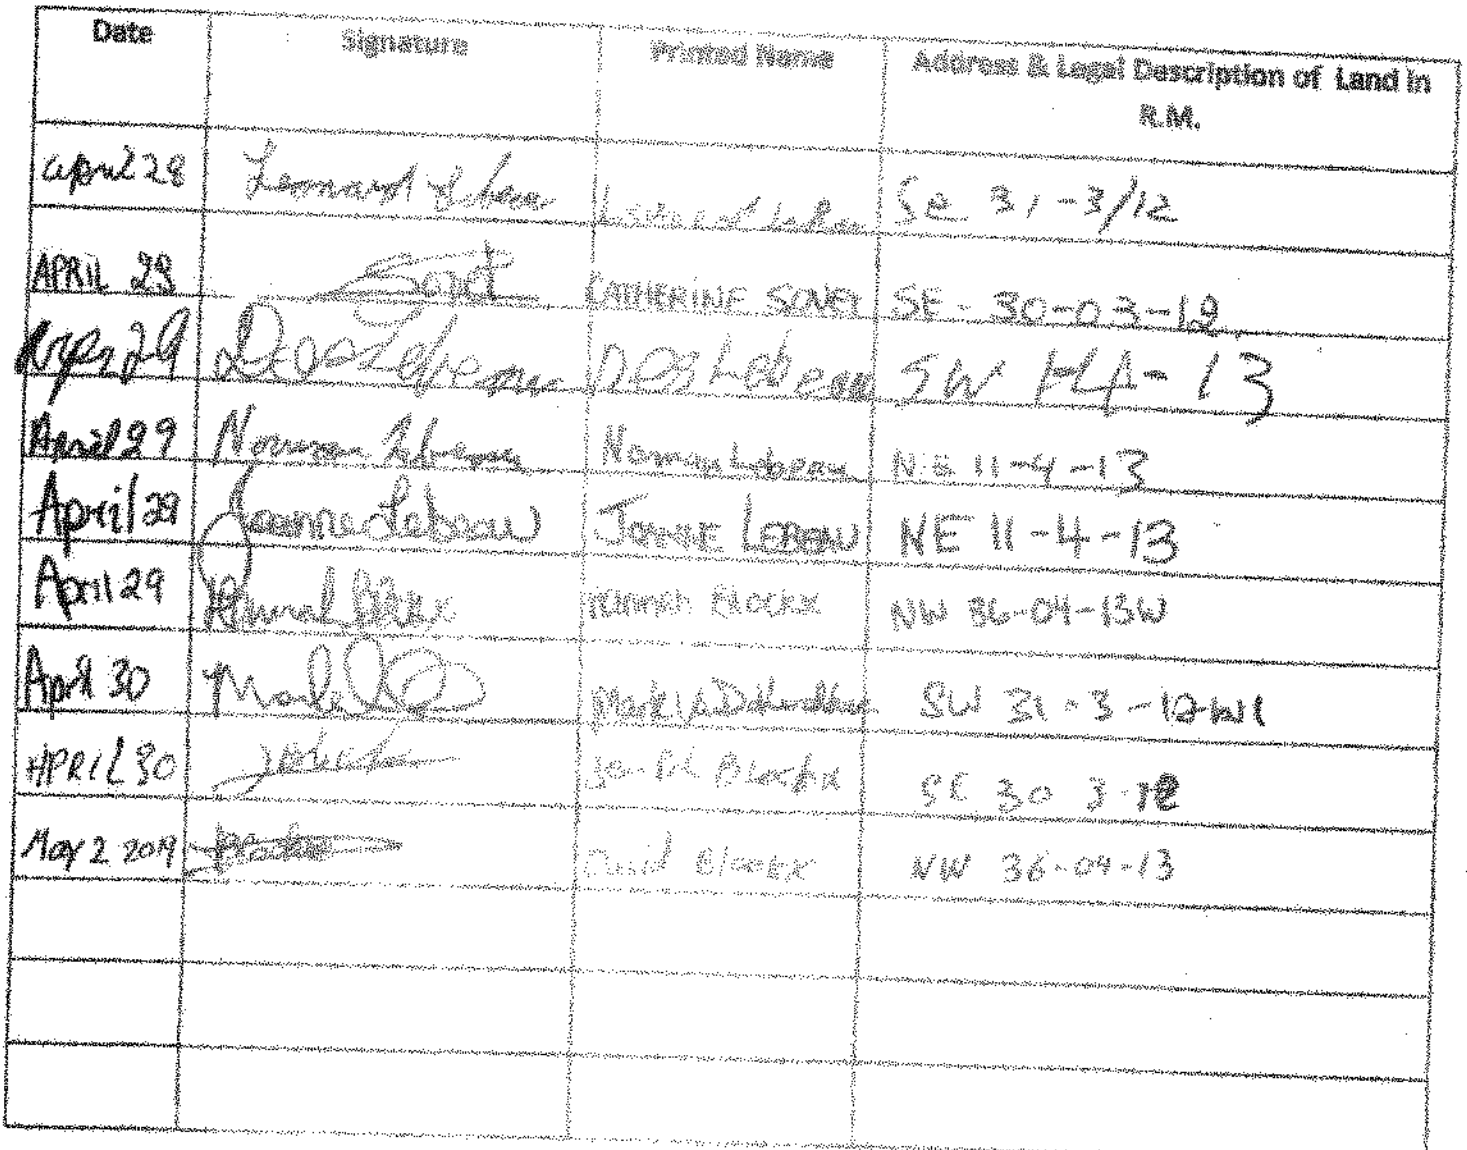 Date Signature Printed Name Address & Legal Description of Land in
R.M.
april 28 Leonard Lebeau SE 31-3/12
APRIL 28 Sonet CATHERINE SONET SE - 30-03-12
29 Des Lebeau Des Lebeau SW 14-13
April 29 Norman Lebeau Norman Lebeau NE 11-4-13
April 29 Joanne Lebeau JOANNE LEBEAU NE 11-4-13
April 29 Hannah Blockx Hannah Blockx NW 36-04-13W
April 30 Mark SW 31-3-12-W1
APRIL 30 Blockx SE 30 3-12
May 2 2019 David Blockx NW 36-04-13